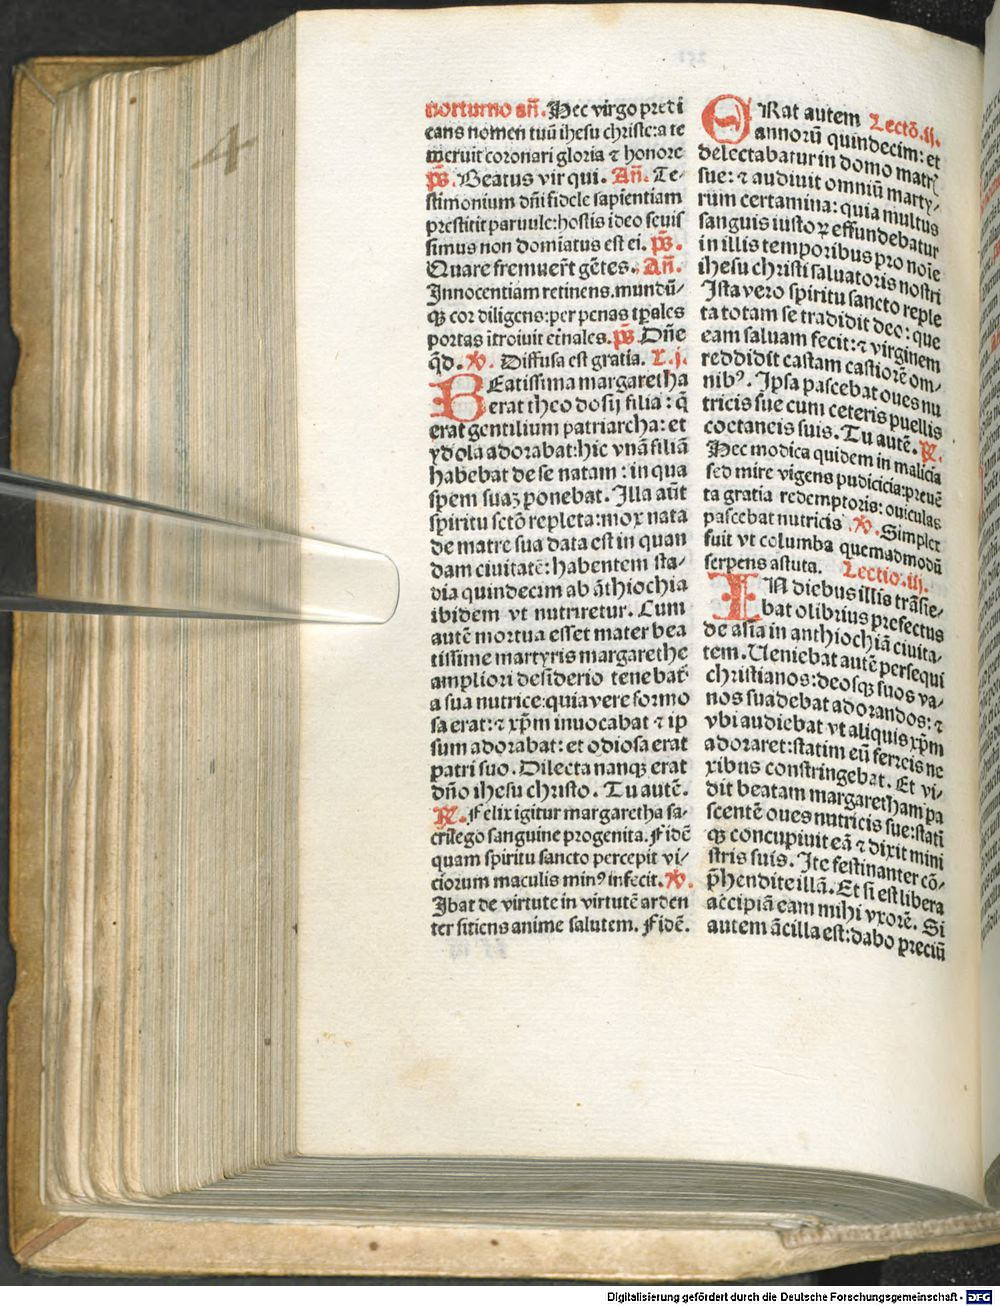 nocturno an̄. Hec virgo preci
eans nomen tuū ihesu christe: a te
meruit coronari gloria ⁊ honore
p̄s. Beatus vir qui. An̄. Te⸗
stimonium dn̄i fidele sapientiam
prestitit paruule: hostis ideo seuis
simus non domīatus est ei. p̄s.
Quare fremuer̄t gētes. An̄.
Innocentiam retinens. mundū⸗
qꝫ cor diligens: per penas tp̄ales
portas ītroiuit et̄nales. p̄s. Dn̄e
q̄d. ꝟ. Diffusa est gratia. L. j.
BEatissima margaretha
erat theodosij filia: q̄
erat gentilium patriarcha: et
ydola adorabat: hic vnā filiā
habebat de se natam: in qua
spem suaꝫ ponebat. Illa aūt
spiritu sctō repleta: mox nata
de matre sua data est in quan
dam ciuitatē: habentem sta⸗
dia quindecim ab āthiochia
ibidem vt nutriretur. Cum
autē mortua esset mater bea
tissime martyris margarethe
ampliori desiderio tenebat̄
a sua nutrice: quia vere formo
sa erat: ⁊ xp̄m inuocabat ⁊ ip
sum adorabat: et odiosa erat
patri suo. Dilecta nanqꝫ erat
dn̄o ihesu christo. Tu autē.
℟. Felix igitur margaretha sa⸗
crilego sanguine progenita. Fidē
quam spiritu sancto percepit vi⸗
ciorum maculis minꝰ infecit. ꝟ.
Ibat de virtute in virtutē arden
ter sitiens anime salutem. Fidē.
ORat autem Lectō. ij.
annorū quindecim: et
delectabatur in domo matr̄
sue: ⁊ audiuit omniū marty⸗
rum certamina: quia multus
sanguis iustoꝝ effundebatur
in illis temporibus pro noīe
ihesu christi saluatoris nostri
Ista vero spiritu sancto reple
ta totam se tradidit deo: que
eam saluam fecit: ⁊ virginem
reddidit castam castiorē om⸗
nibꝰ. Ipsa pascebat oues nu
tricis sue cum ceteris puellis
coetaneis suis. Tu autē. ℟.
Hec modica quidem in malicia
sed mire vigens pudicicia: preuē
ta gratia redemptoris: ouiculas
pascebat nutricis. ꝟ. Simplex
fuit vt columba quemadmodū
serpens astuta. Lectio. iij.
IN diebus illis trāsie⸗
bat olibrius prefectus
de asia in anthiochiā ciuita⸗
tem. Ueniebat autē persequi
christianos: deosqꝫ suos va⸗
nos suadebat adorandos: ⁊
vbi audiebat vt aliquis xp̄m
adoraret: statim eū ferreis ne
xibus constringebat. Et vi⸗
dit beatam margaretham pa
scentē oues nutricis sue: stati
qꝫ concupiuit eā ⁊ dixit mini
stris suis. Ite festinanter cō⸗
p̄hendite illā. Et si est libera
accipiā eam mihi vxorē. Si
autem ācilla est: dabo preciū
4
Digitalisierung gefördert durch die Deutsche Forschungsgemeinschaft - DFG